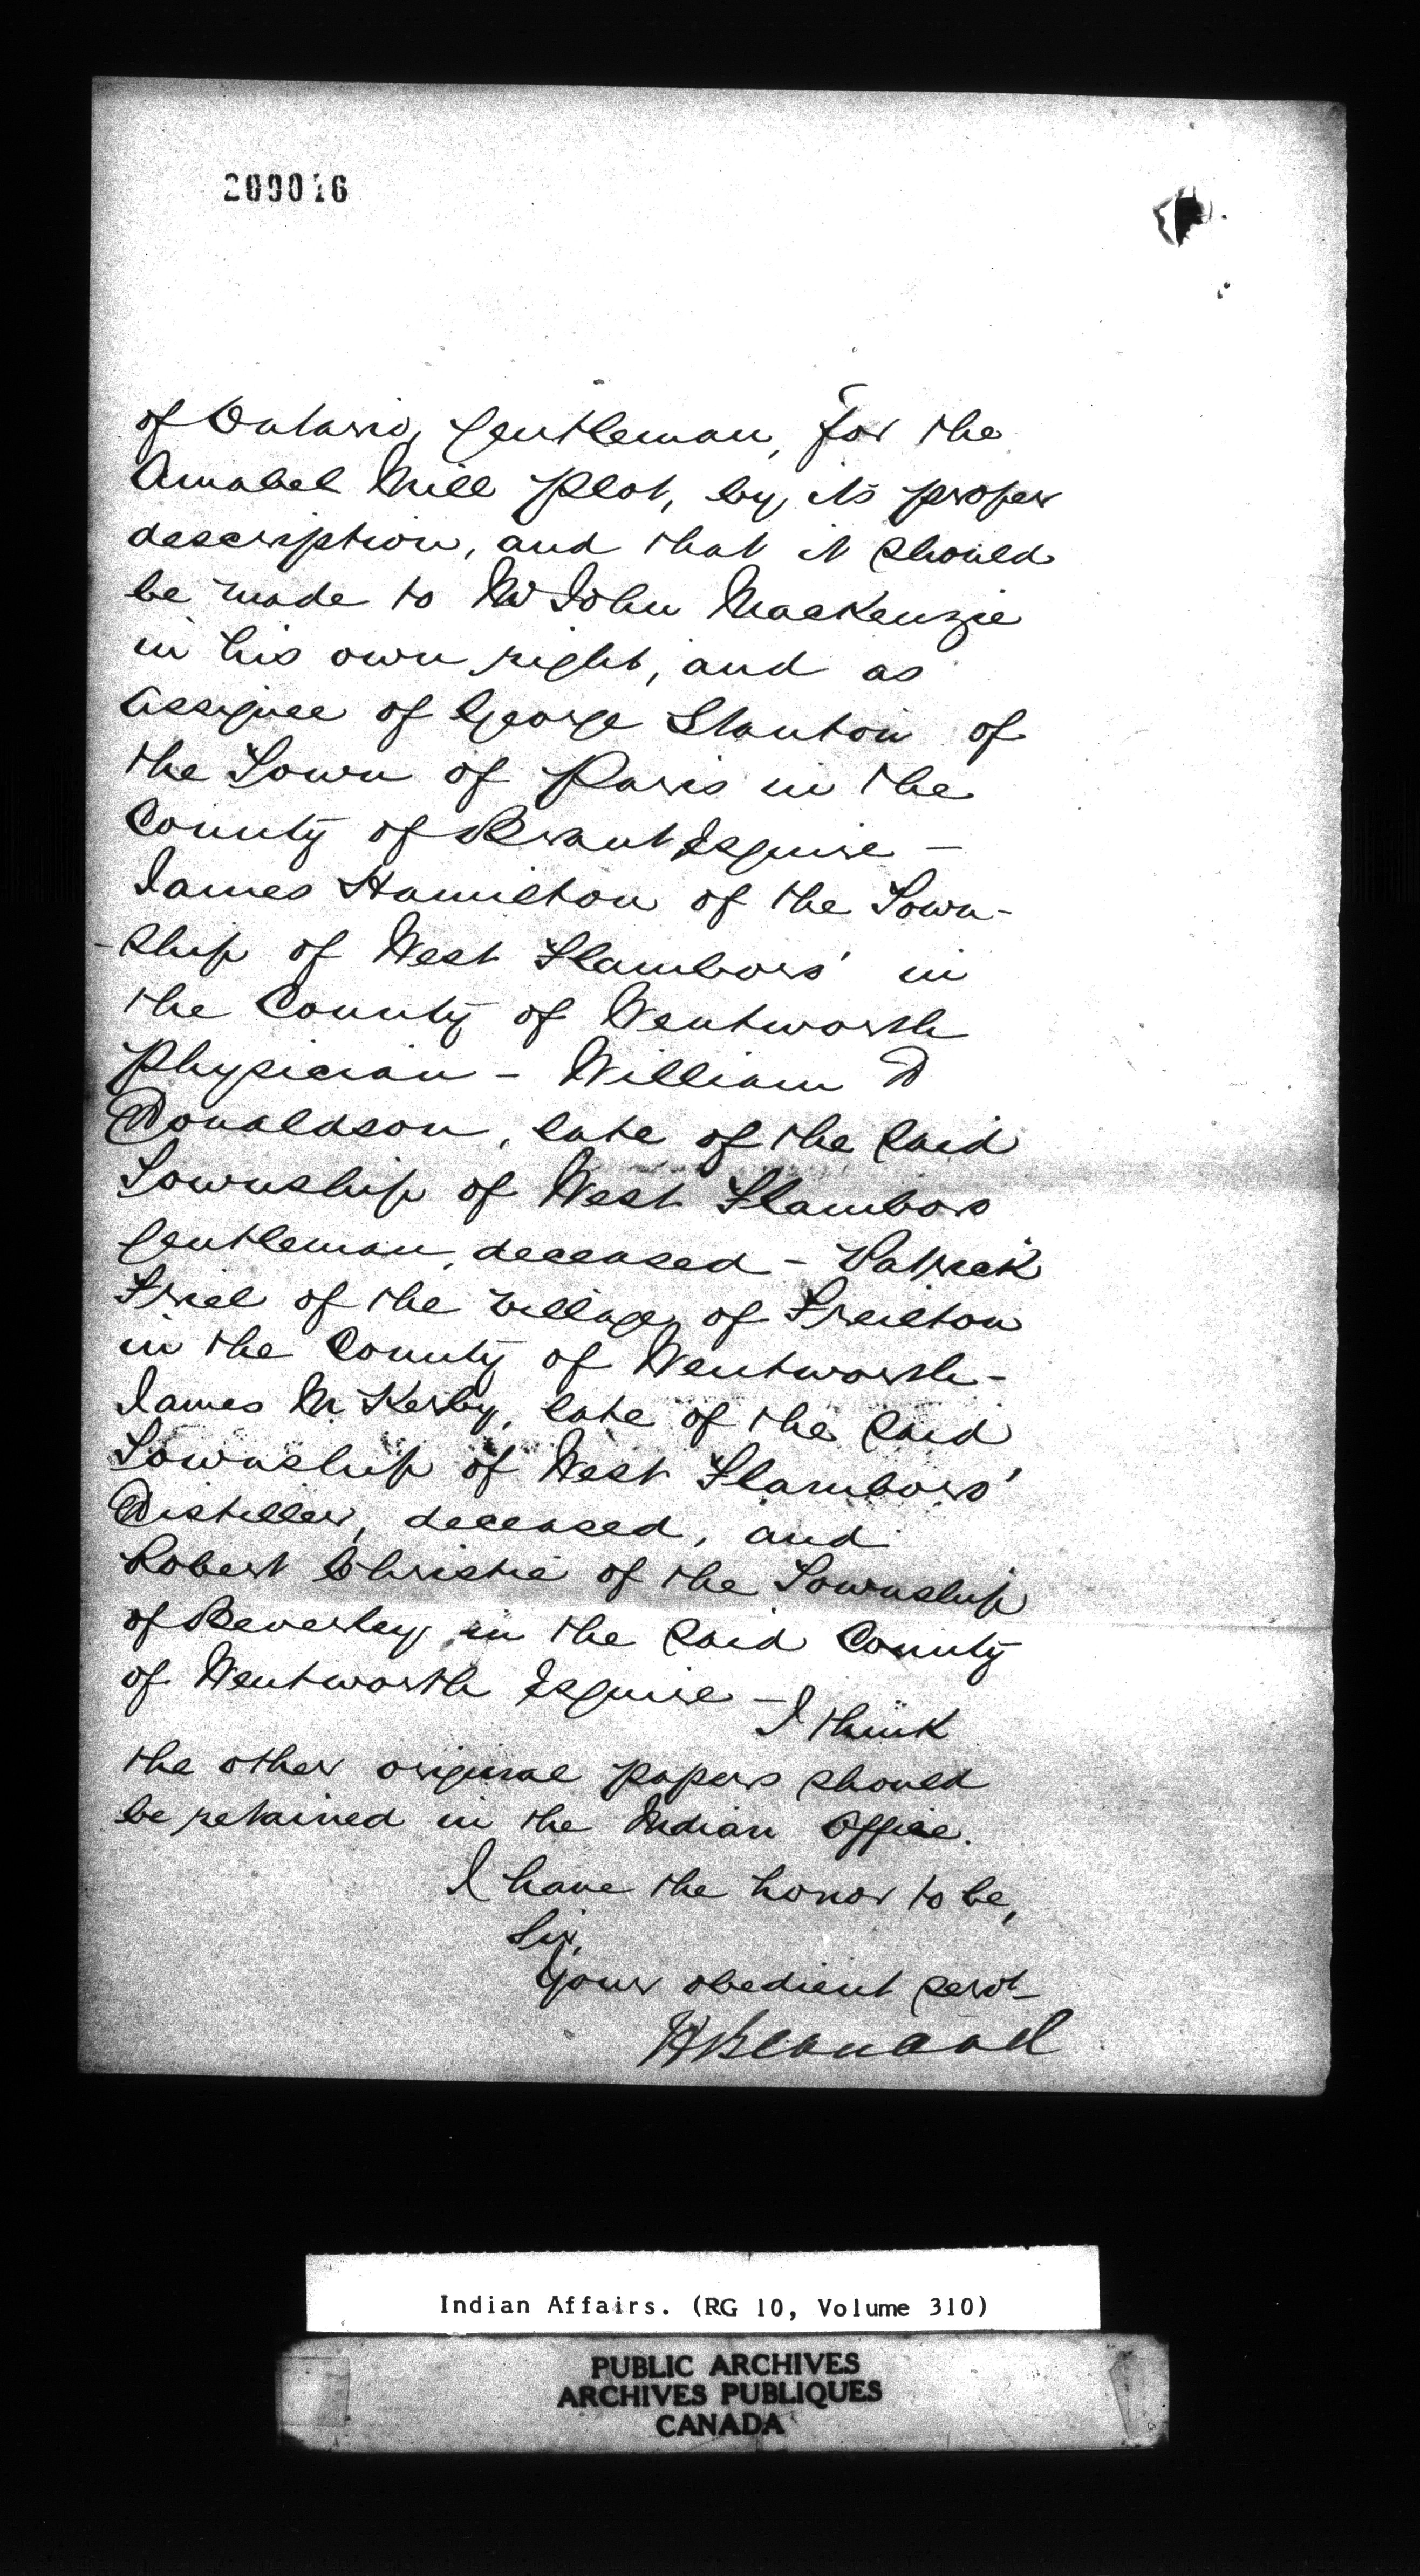 200016
of Ontario, Gentleman, for the
Amabel Mill Plot, by its proper
description, and that it should
be made to Mr John MacKenzie
in his own right, and as
assignee of George Stanton of
the Town of Paris in the
County of Brant Esquire -
James Hamilton of the Town-
-ship of West Flamboro' in
the County of Wentworth
Physician - William D
Donaldson, late of the said
Township of West Flamboro
Gentleman, deceased - Patrick
Friel of the Village of Freelton
in the County of Wentworth -
James McKerby, late of the said
Township of West Flamboro'
Distiller, deceased, and
Robert Christie of the Township
of Beverley in the said County
of Wentworth Esquire - I think
the other original papers should
be retained in the Indian Office.
I have the honor to be,
Sir,
Your obedient servt
Indian Affairs. (RG 10, Volume 310)
PUBLIC ARCHIVES
ARCHIVES PUBLIQUES
CANADA